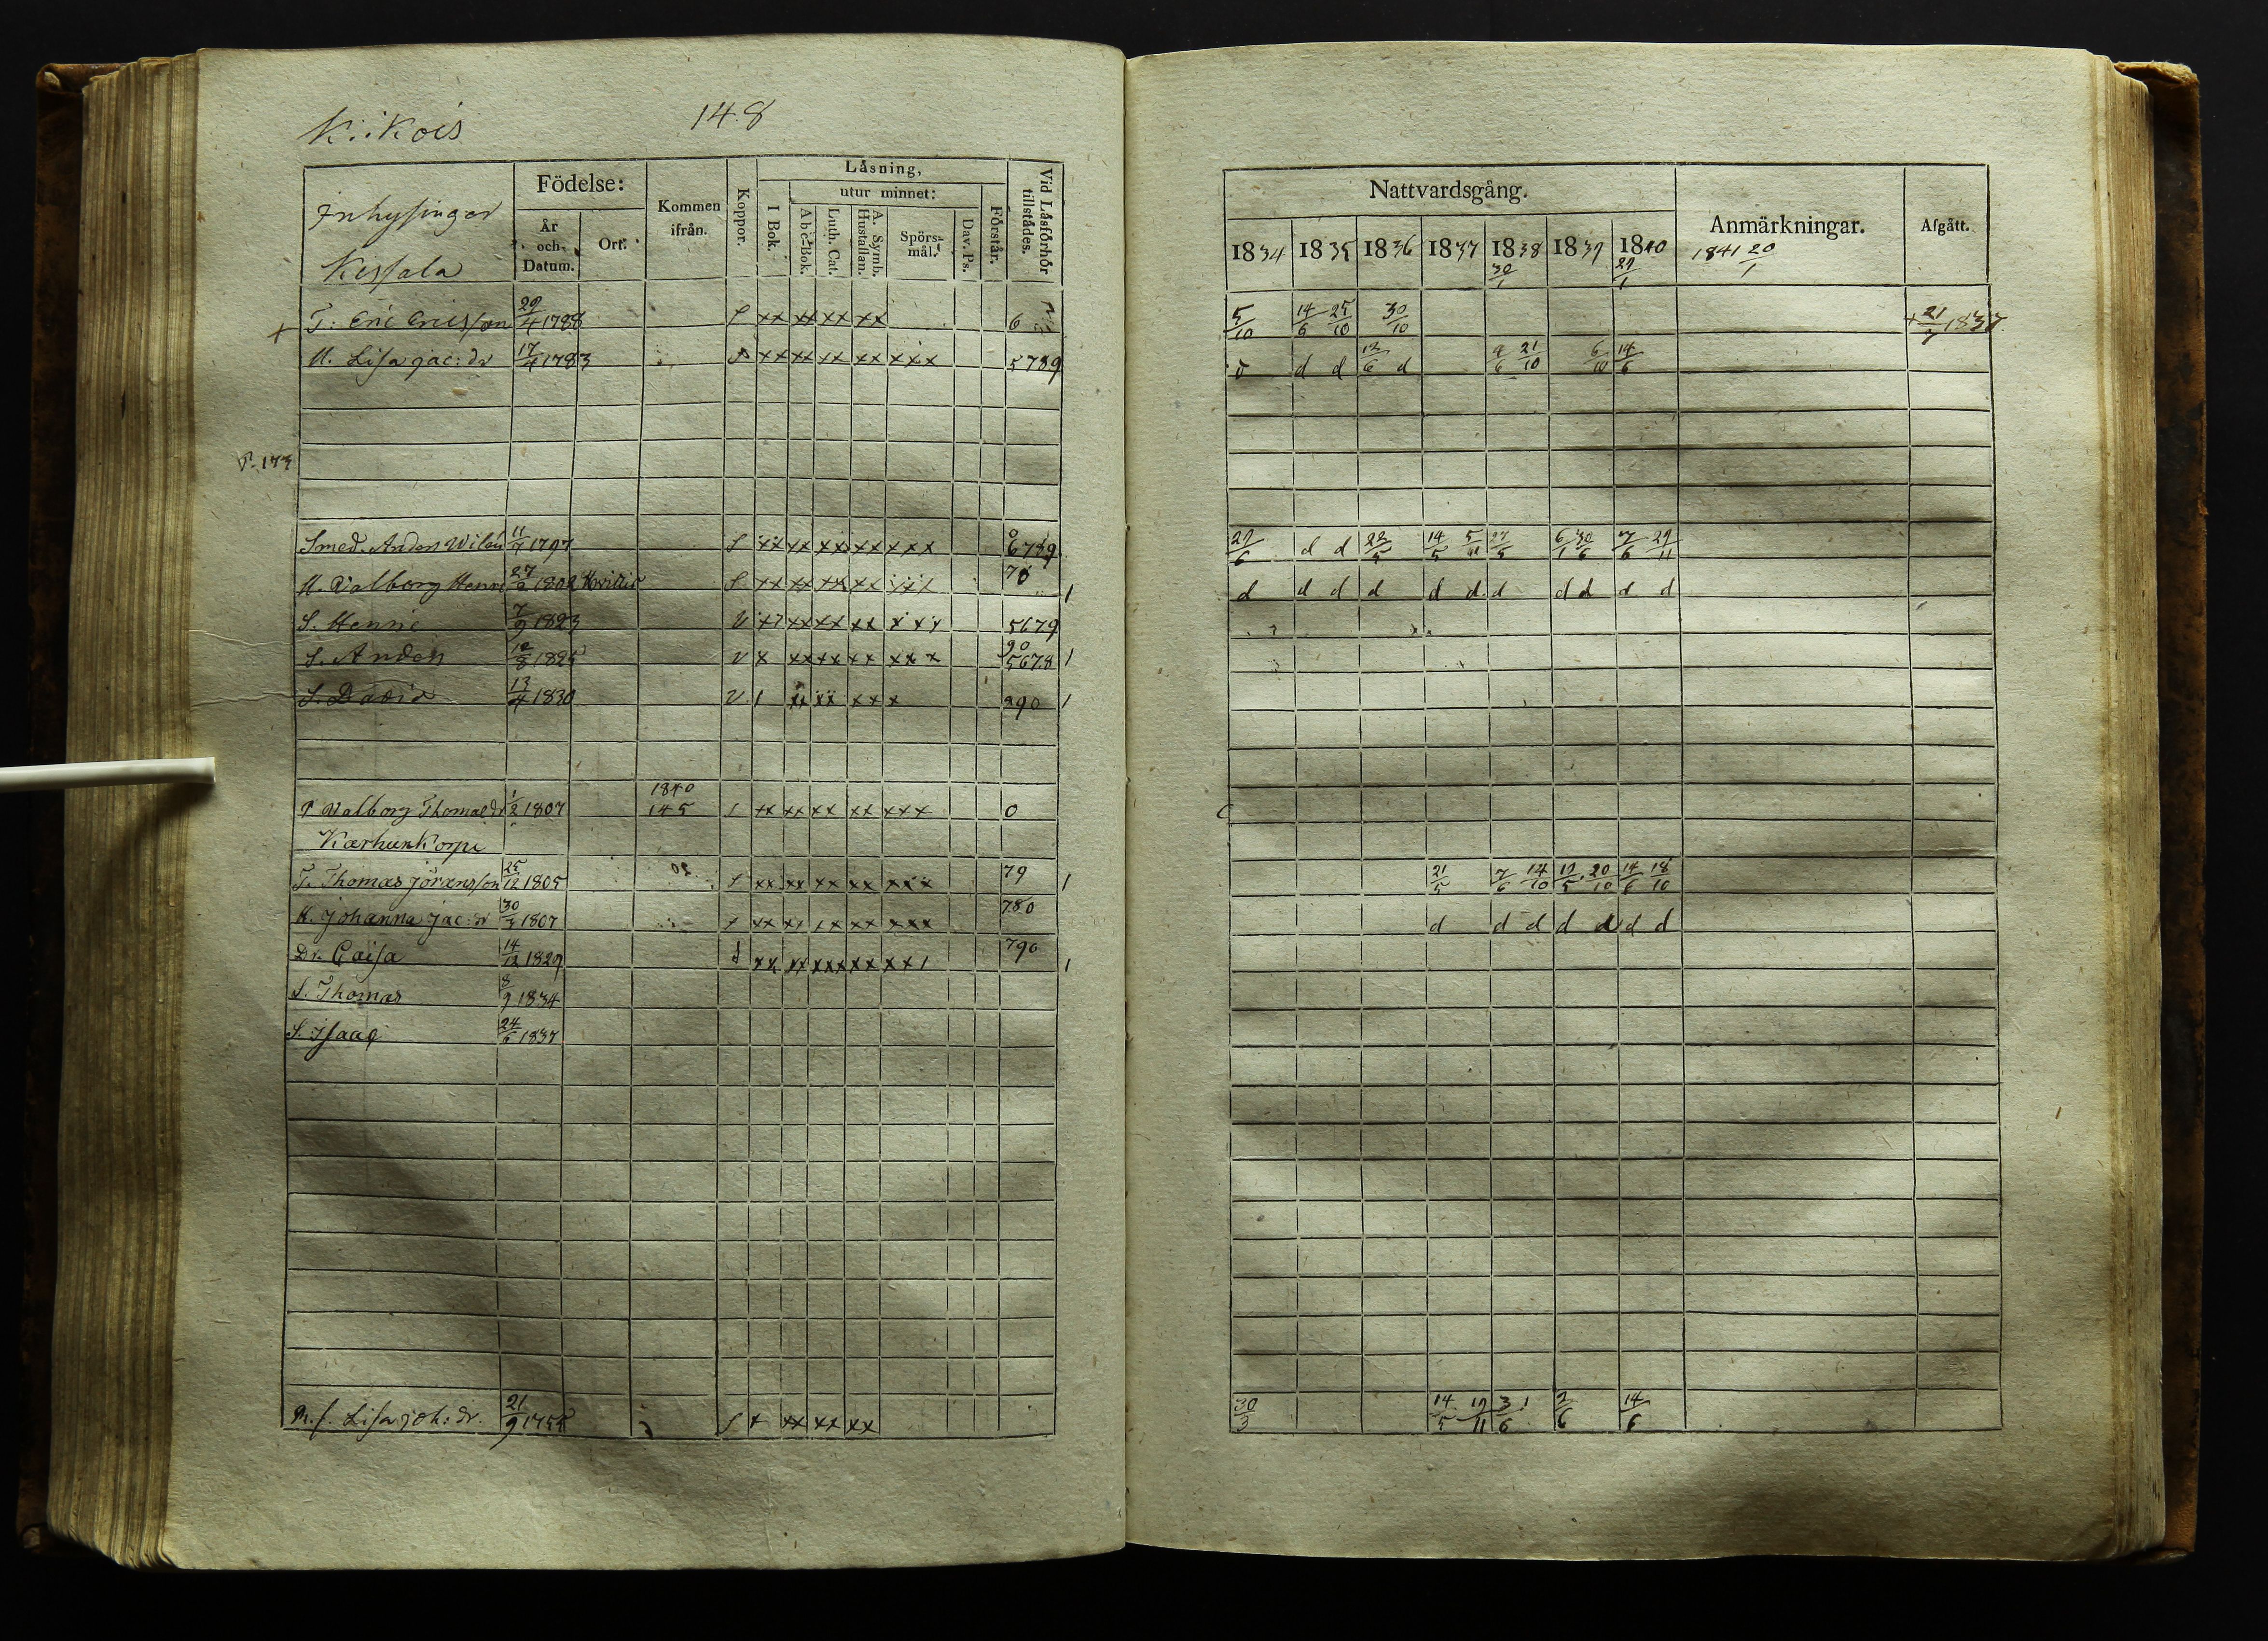 Kiikois 148
Inhysingar
Kessala
Födelse:
År och Datum.
Ort.
Kommen ifrån.
Koppor.
Låsning,
I Bok.
utur minnet:
Abc-Bok.
Luth. Cat.
A. Symb. Hustaflan.
Spörsmål.
Dav. Ps.
Förstår.
Vid Låsförhör tillstådes.
T: Eric Ericsson 29/4 1788 S xx xx xx xx 6
H. Lisa Jac: dr 17/4 1783 S xx xx xx xx xxx 5789
P. 173
Smed. Anders Wilén 11/7 1797 S xx xx xx xx xxx 0 6789
H. Valborg Henr 27/2 1802 S xx xx xx xx xxx
S. Henric 7/9 1823 V xx xx xx xx xxx 5679
S. Anders 12/8 1825 V x xx xx xx xxx 90 5678 1
S. David 13/4 1830 V 1 xx xx xx x 890 1
P Valborg Thomasdr 1/2 1807 1840 145 1 xx xx xx xx xxx 0
Karhunkorpi
T. Thomas Jöransson 25/12 1805 S xx xx xx xx xxx 79 1
H. Johanna Jac: dr 30/3 1807 xx xx xx xx xxx 780
Dr. Caisa 14/12 1829 S xx xx xxx xx xx1 790 1
S. Thomas 8/9 1834
S. Isaac 24/6 1837
Lisa Joh: dr. 21/9 1755 S x xx xx xx
Nattvardsgång. Anmärkningar. Afgått.
1834 1835 1836 1837 1838 1839 1840 1841 20/1
30/1 29/1
5/10 14/6 25/10 30/10 + 21/7 1837
d d d 12/6 d 9/6 21/10 6/10 14/6
29/6 d d 22/5 14/5 5/11 27/5 6/1 30/6 7/6 29/11
d d d d d d d d d d d
21/5 7/6 14/10 19/5 20/10 14/6 18/10
d d d d d d d
30/3 14/5 19/11 3/6 2/6 14/6